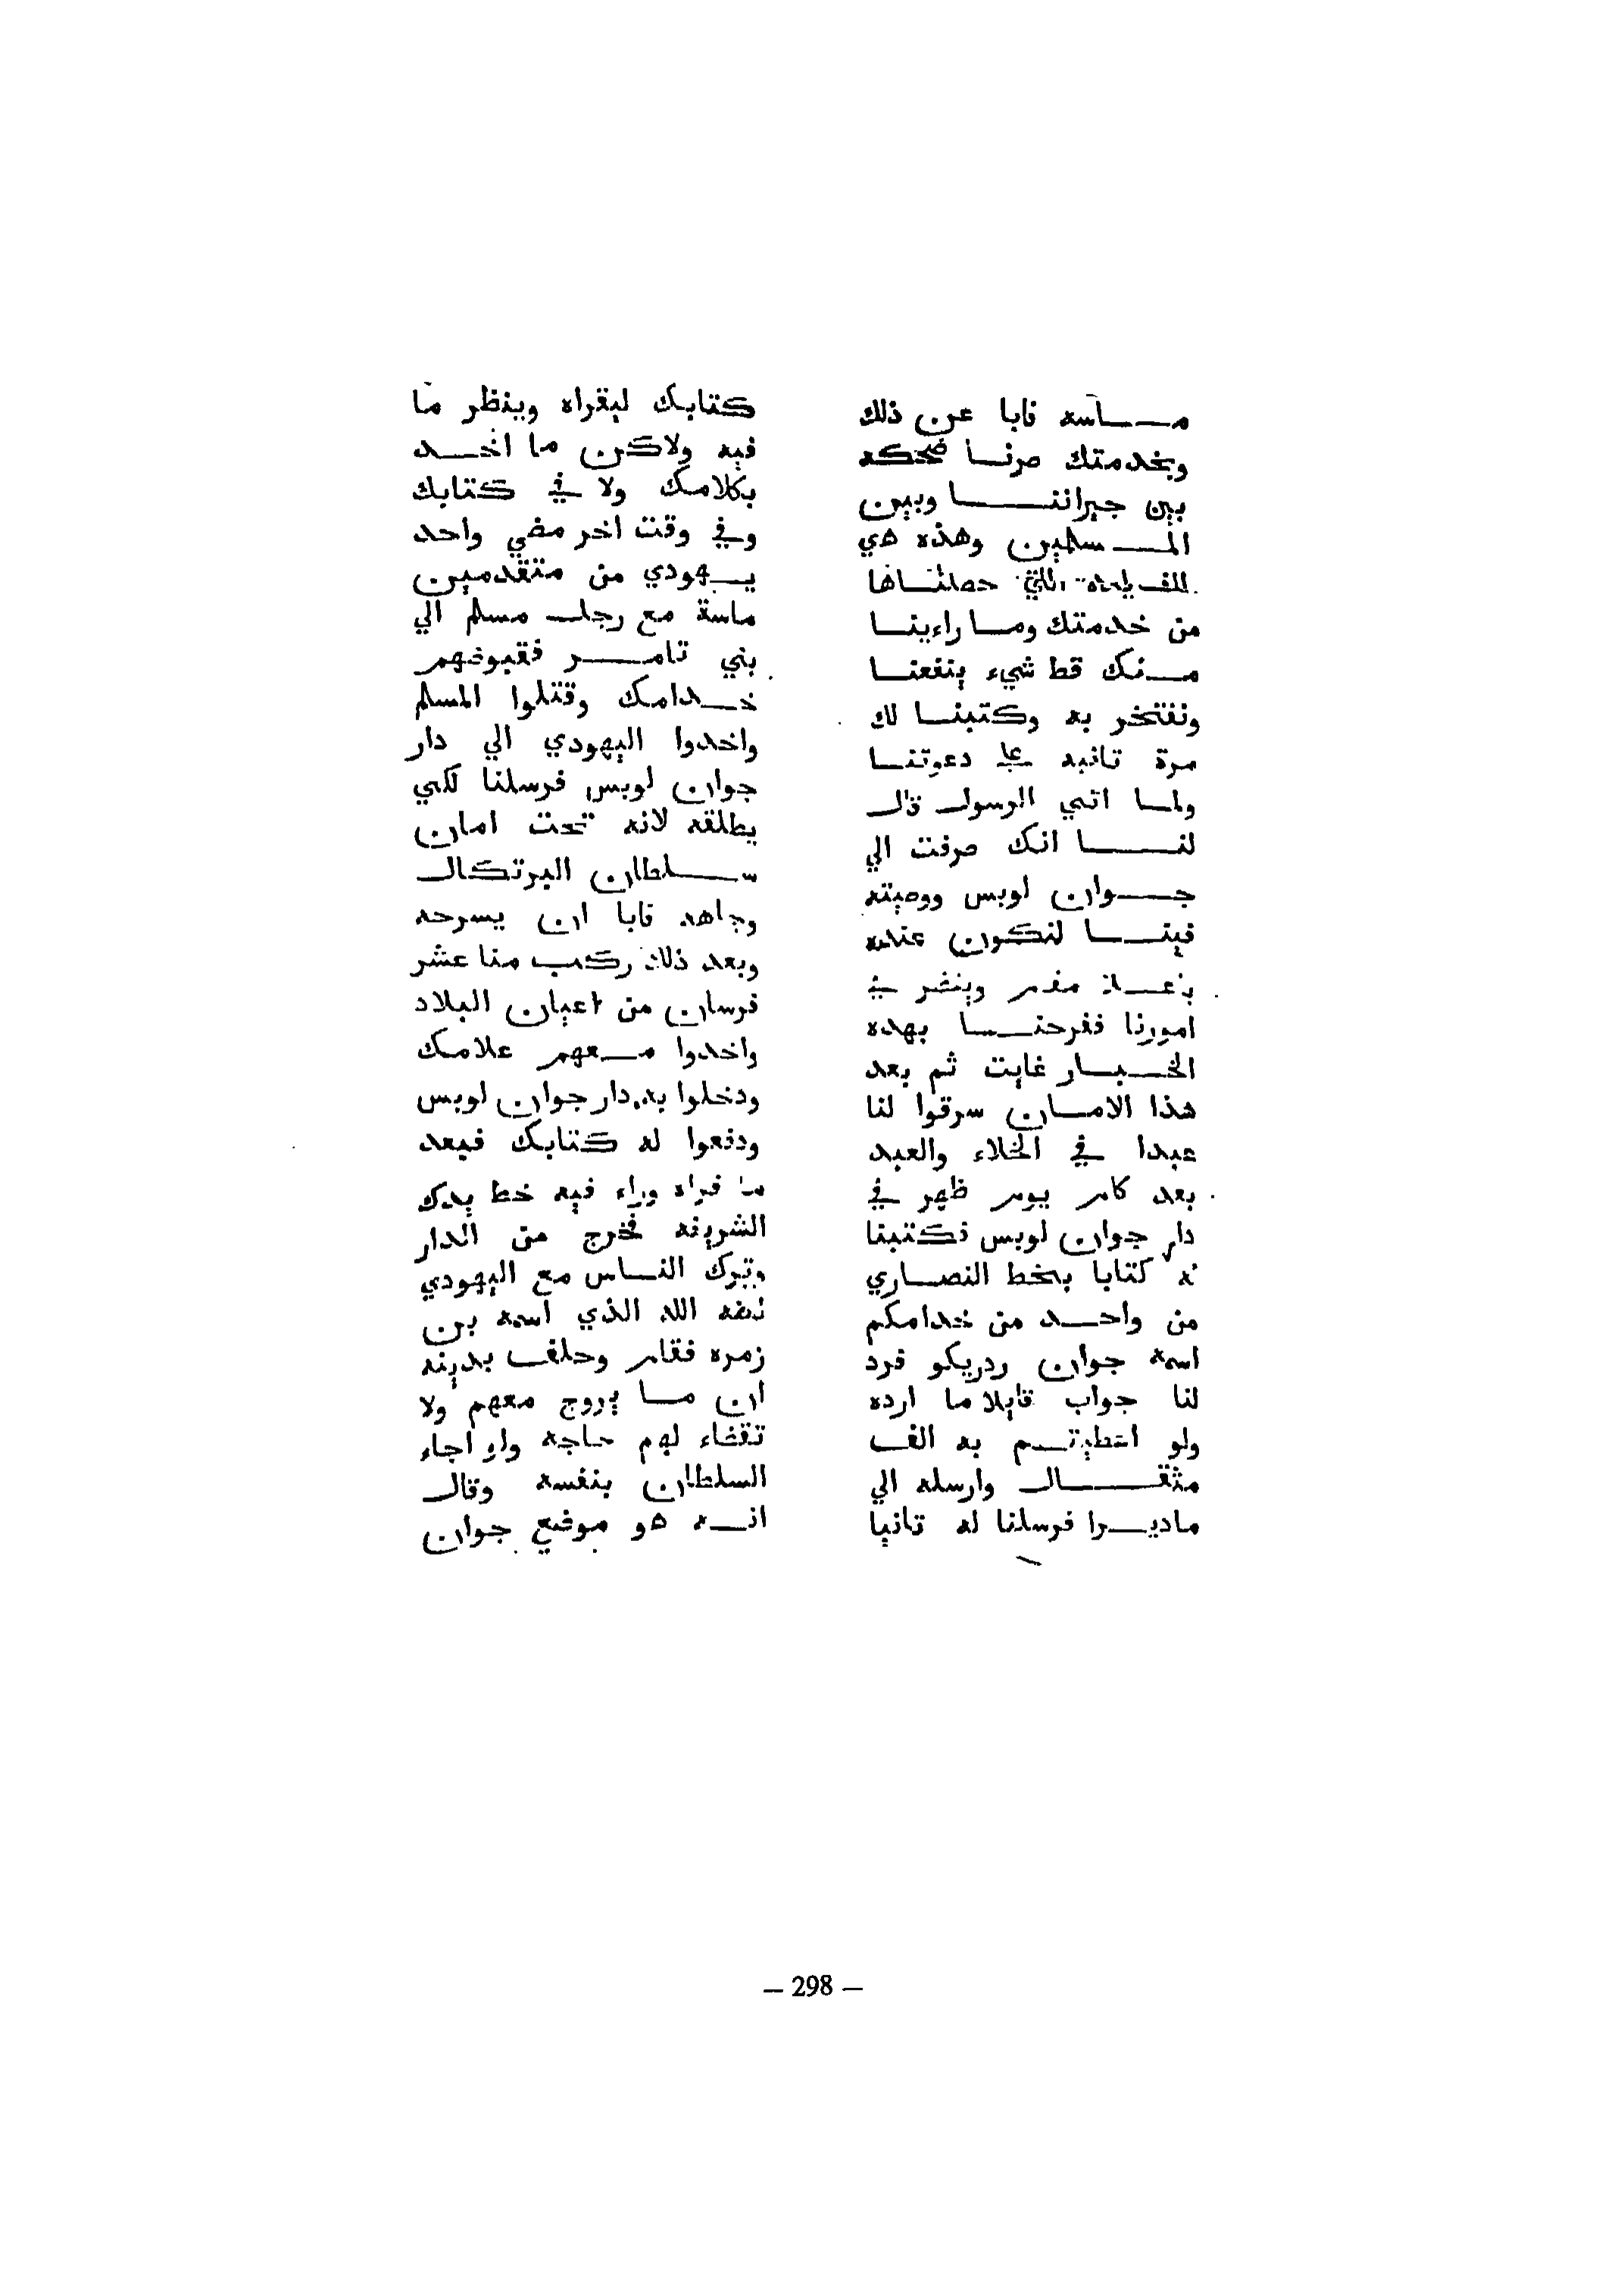 مــاسه فابا عن ذلك
وبخدمتك صرنا ضحكه
بين جيراننا وبين
المسلمين وهذه هي
الفايده التي حصلناها
من خدمتك وما راءينا
منك قط شيء ينفعنا
ونفتخر به وكتبنا لك
مرة تانيه على دعوتنا
ولما اتى الرسول قال
لنا انك صرفت الي
جوان لوبس ووصيته
فينا لنكون عنده
وينضر في
امورنا ففرحنا بهده
الخبار غايت ثم بعد
هذا الامان سرقوا لنا
عبدا في الخلاء والعبد
بعد كام يوم ظهر في
دار جوان لوبس فكتبنا
له كتابا بخط النصاري
من واحد من خدامكم
اسمه جوان ردريكو فرد
لنا جواب قايلا ما ارده
ولو اعطيتم به الف
مثقال وارسله الي
ماديرا فرسلنا له تانيا
كتابك ليقراه وينظر ما
فيه ولاكن ما اخد
بكلامك ولا في كتابك
وفي وقت اخر مضي واحد
يهودي من متقدمين
ماسة مع رجل مسلم الي
بني تامر فقبوضهم
خدامك وقتلوا المسلم
واخدوا اليهودي الي دار
جوان لوبس فرسلنا لكي
يطلقه لانه تحت امان
سلطان البرتكال
وجاهد فابا ان يسرحه
وبعد ذلك ركب منا عشر
فرسان من اعيان البلاد
واخدوا معهم علامك
ودخلوا به دار جوان لوبس
ودفعوا له كتابك فبعد
ما قراه وراء فيه خط يدك
الشريفه فخرج من الدار
وترك الناس مع اليهودي
لعنه الله الذي اسمه بن
زمره فقام وحلف بدينه
ان ما يروج معهم ولا
تقضاء لهم حاجه ولو اجاء
السلطان بنفسه وقال
انه هو موضع جوان
— 298 —